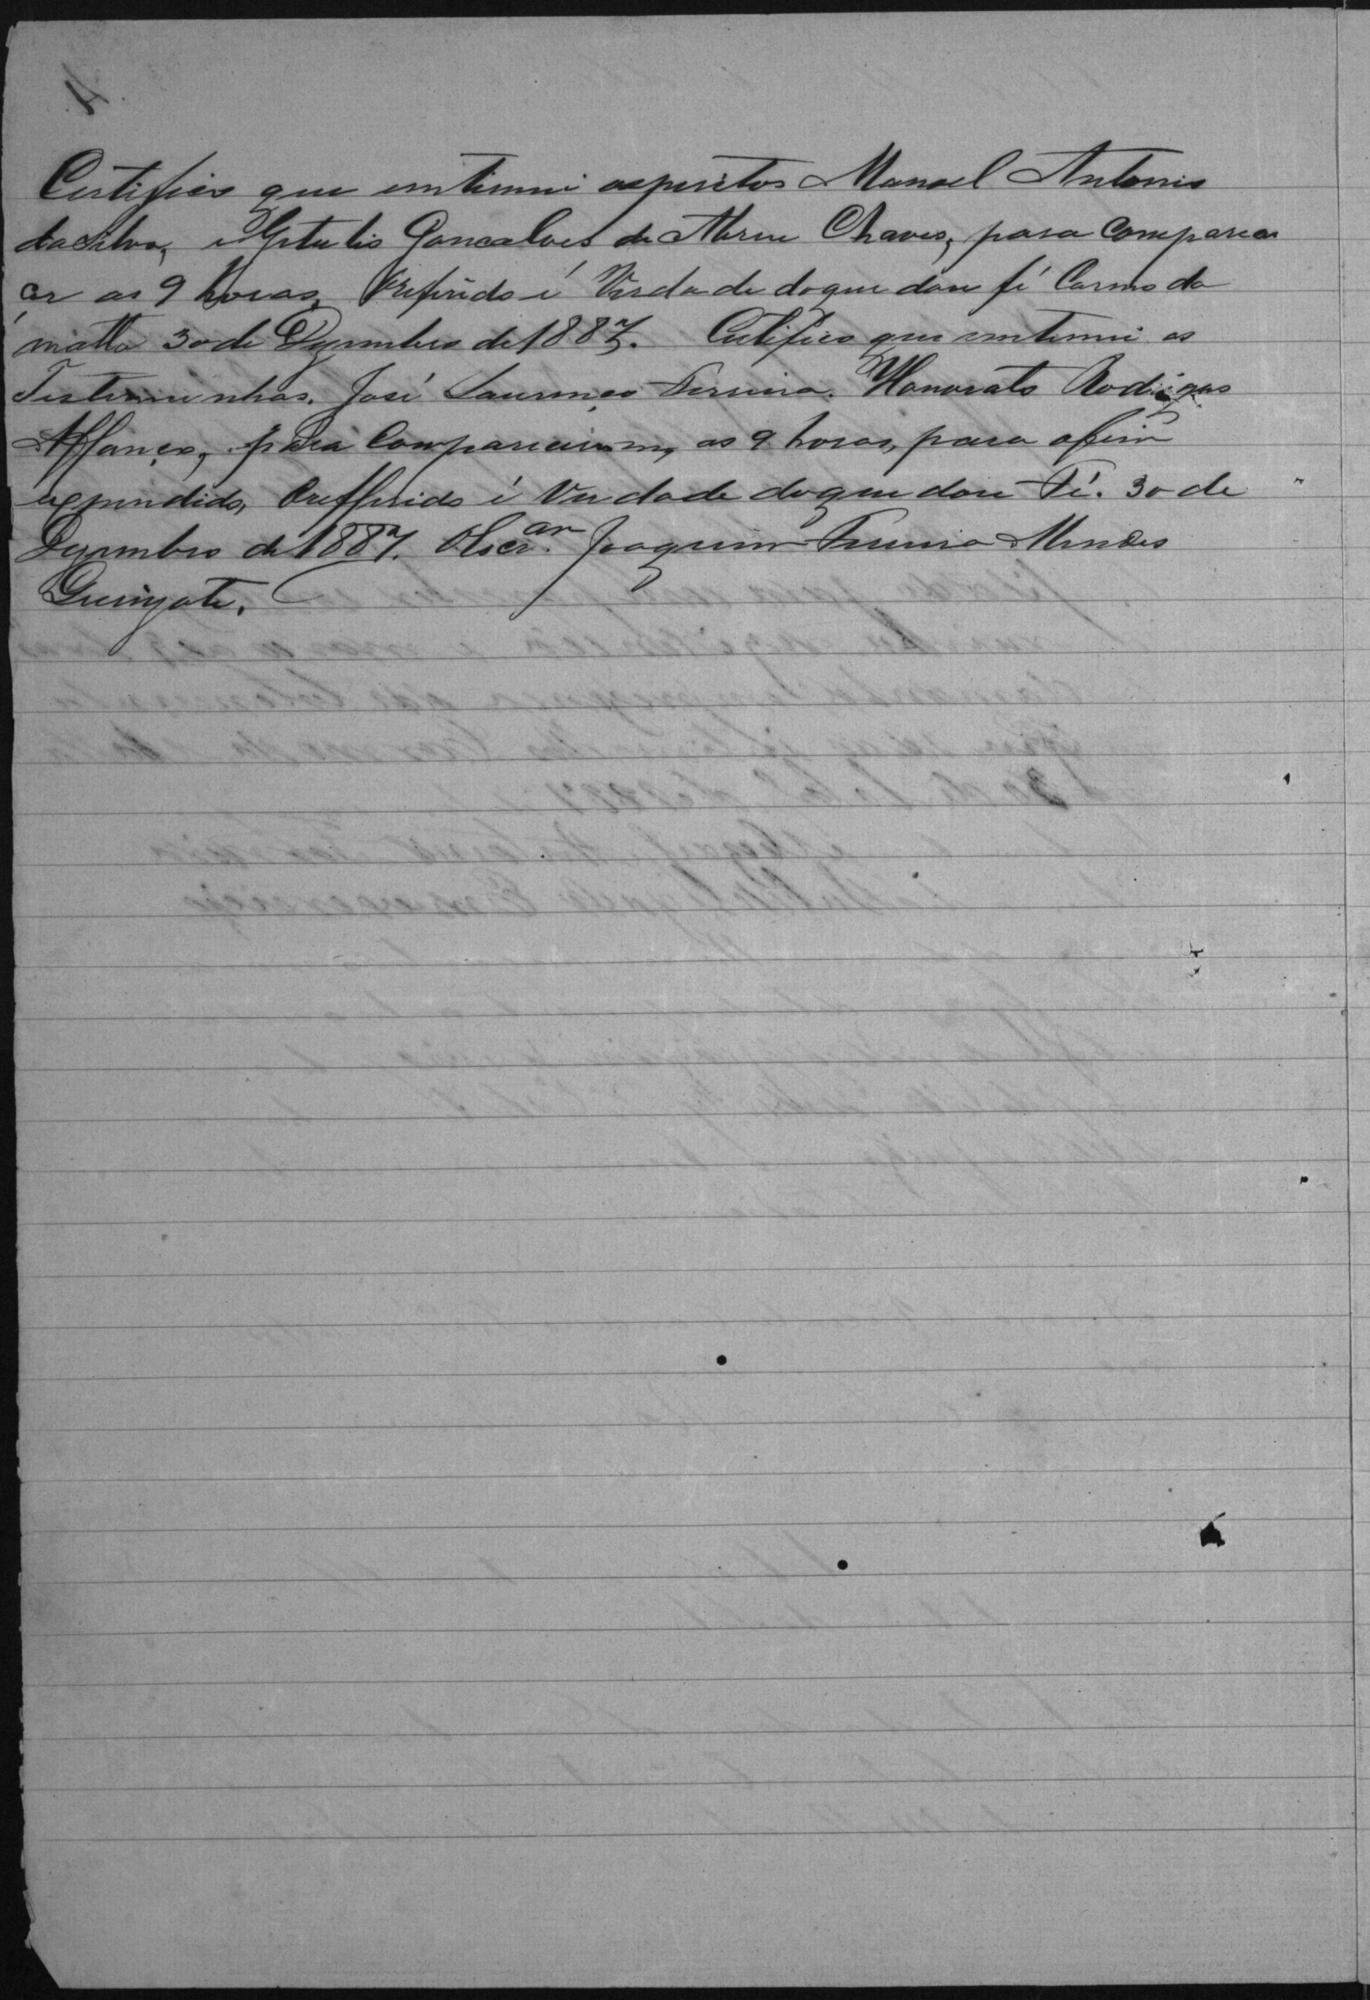 Certifico que emtimei osperitos Manoel Antonio
da Silva, e Getulio Goncalves de Abreu Chaves, para Comparea
cer as 9 horas, Orefirido é Verdade doque dou fé Carmo da
matta 30 de Dezembro de 1887. Certifico que emtimei as
Testeminhas. José Laurenço Ferreira. Honorato Rodrigues
Affonço, para Compareceirem, as 9 horas, para ofim
expindido, Oreffirido é Verdade doque dou Fé. 30 de
Dezembro de 1887. Oescr.am Joaquim Ferreira Mendes